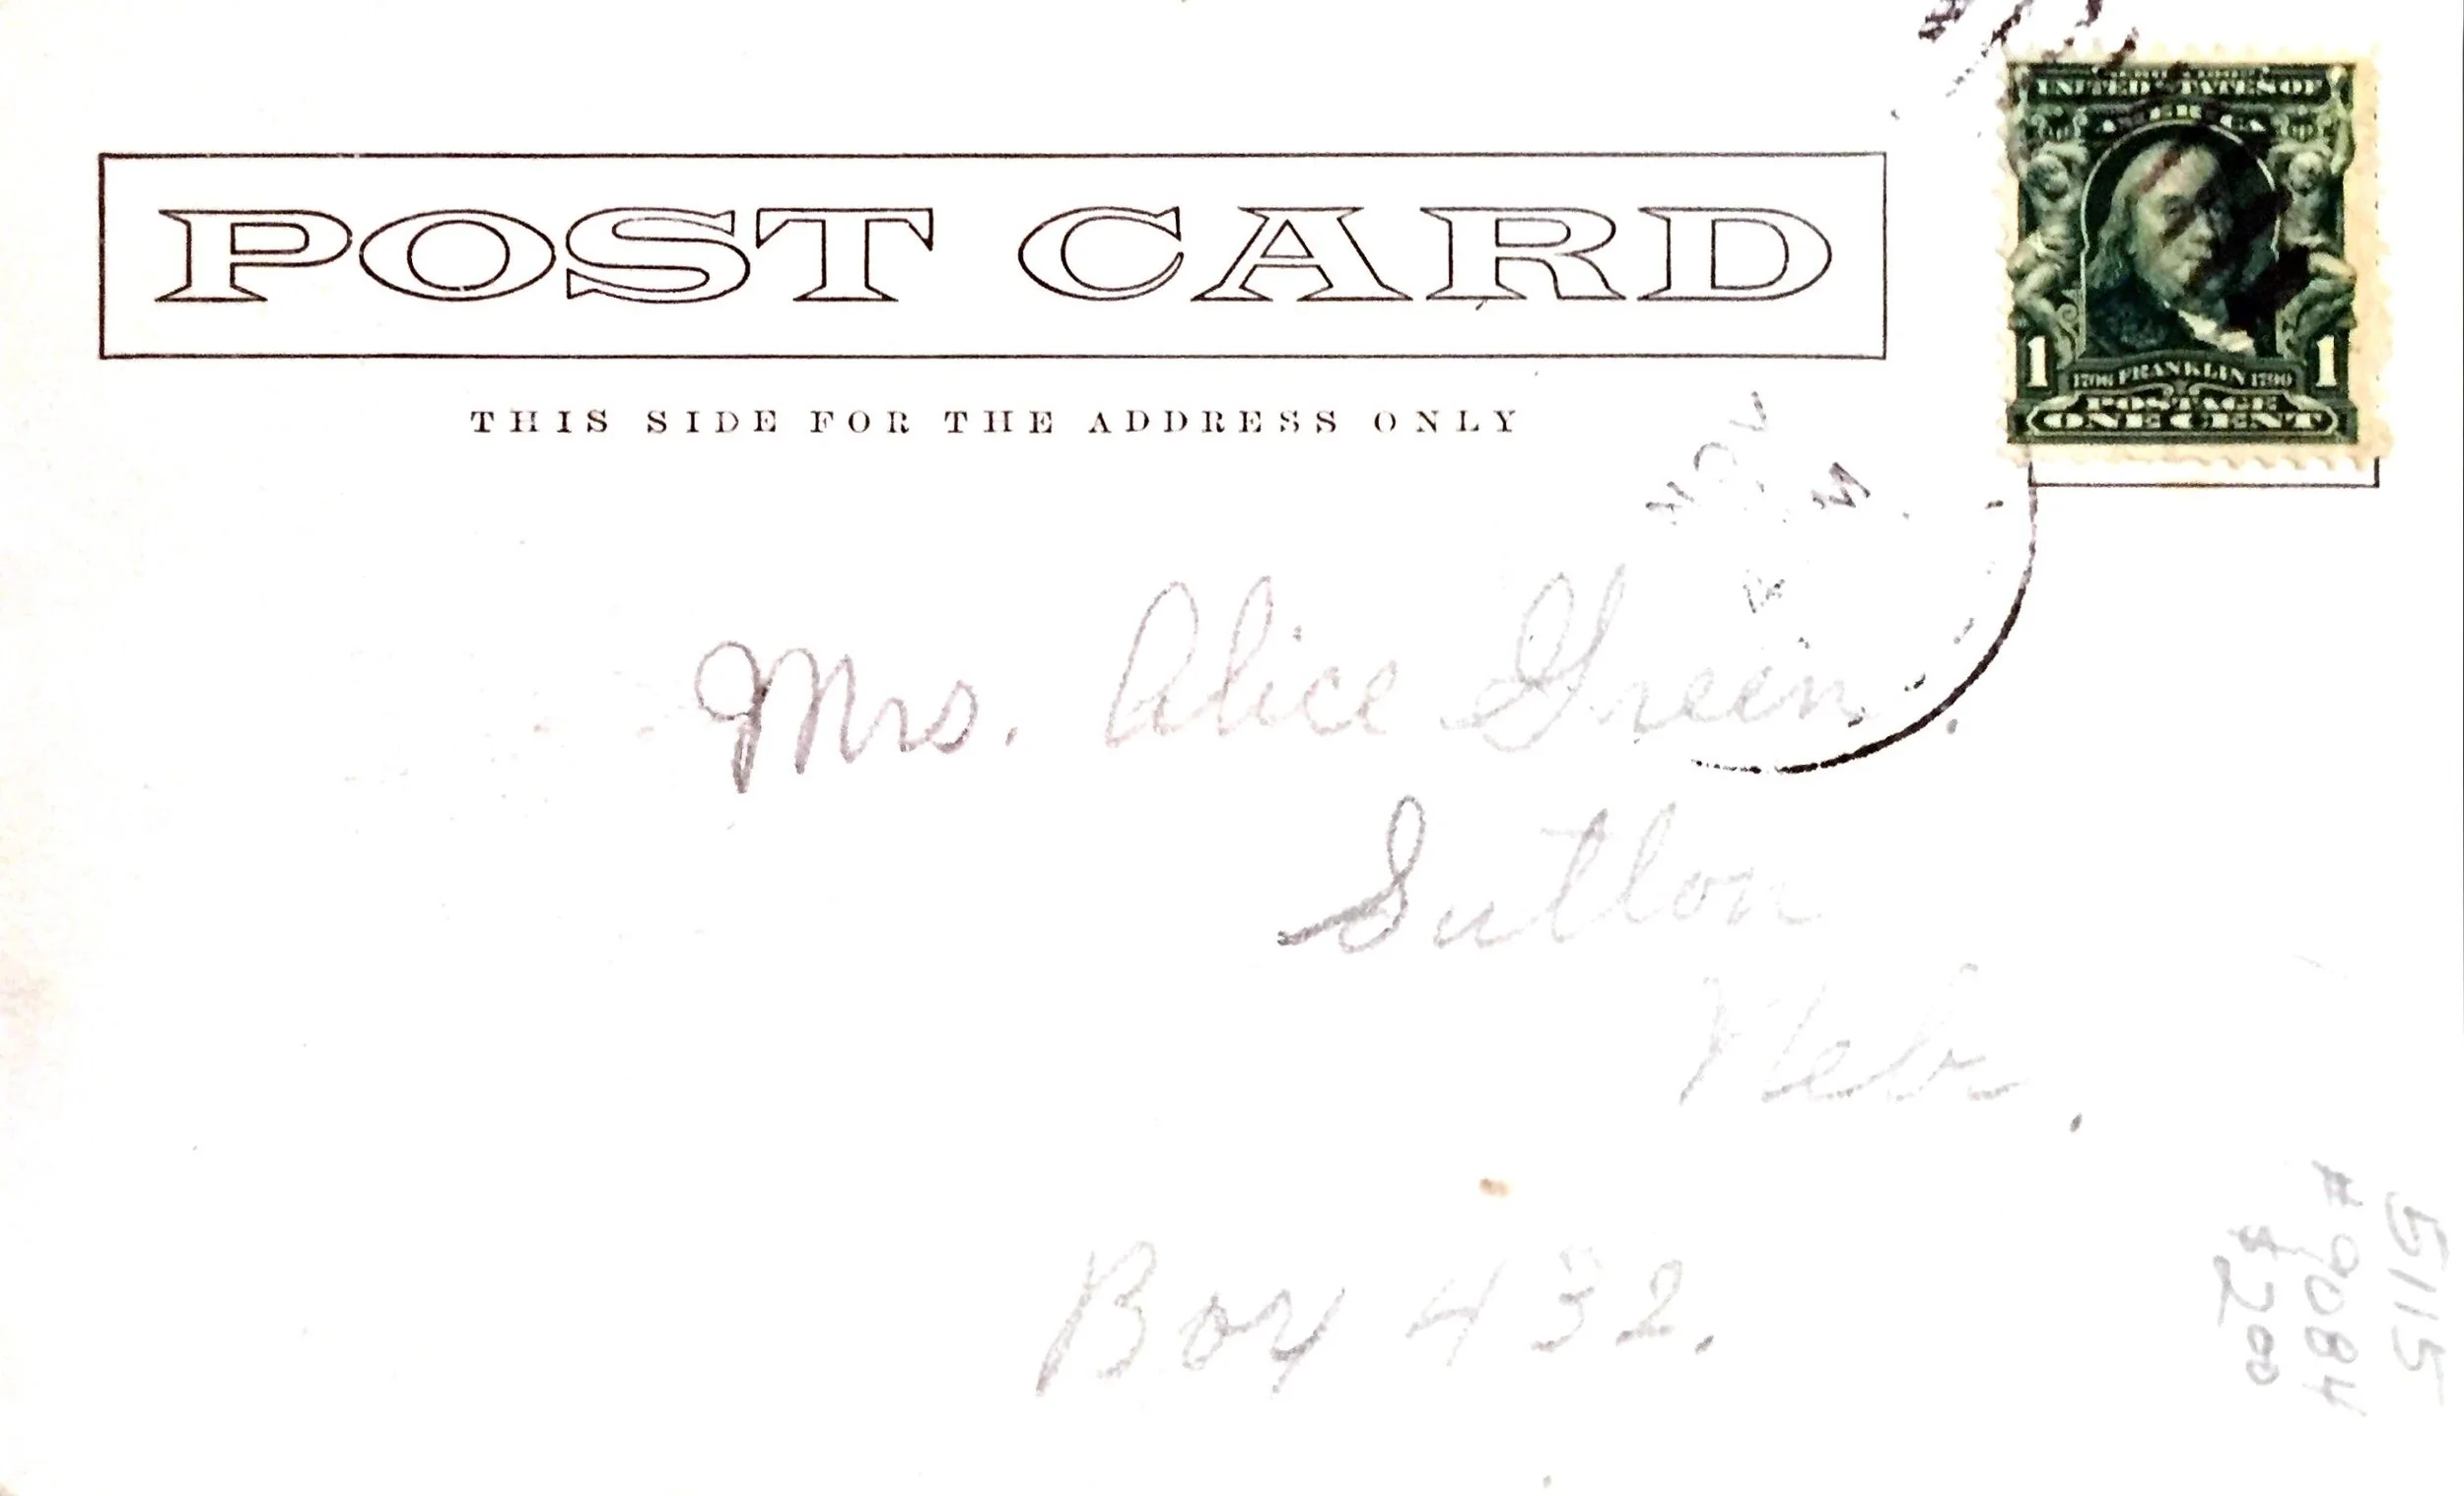 POST CARD
THIS SIDE FOR THE ADDRESS ONLY
UNITED STATES OF
AMERICA
1706 FRANKLIN 1790
1 1
POSTAGE
ONE CENT
Mrs. Alice Green.
Sutton
Nebr.
Box 432.
5115
#9084
$200